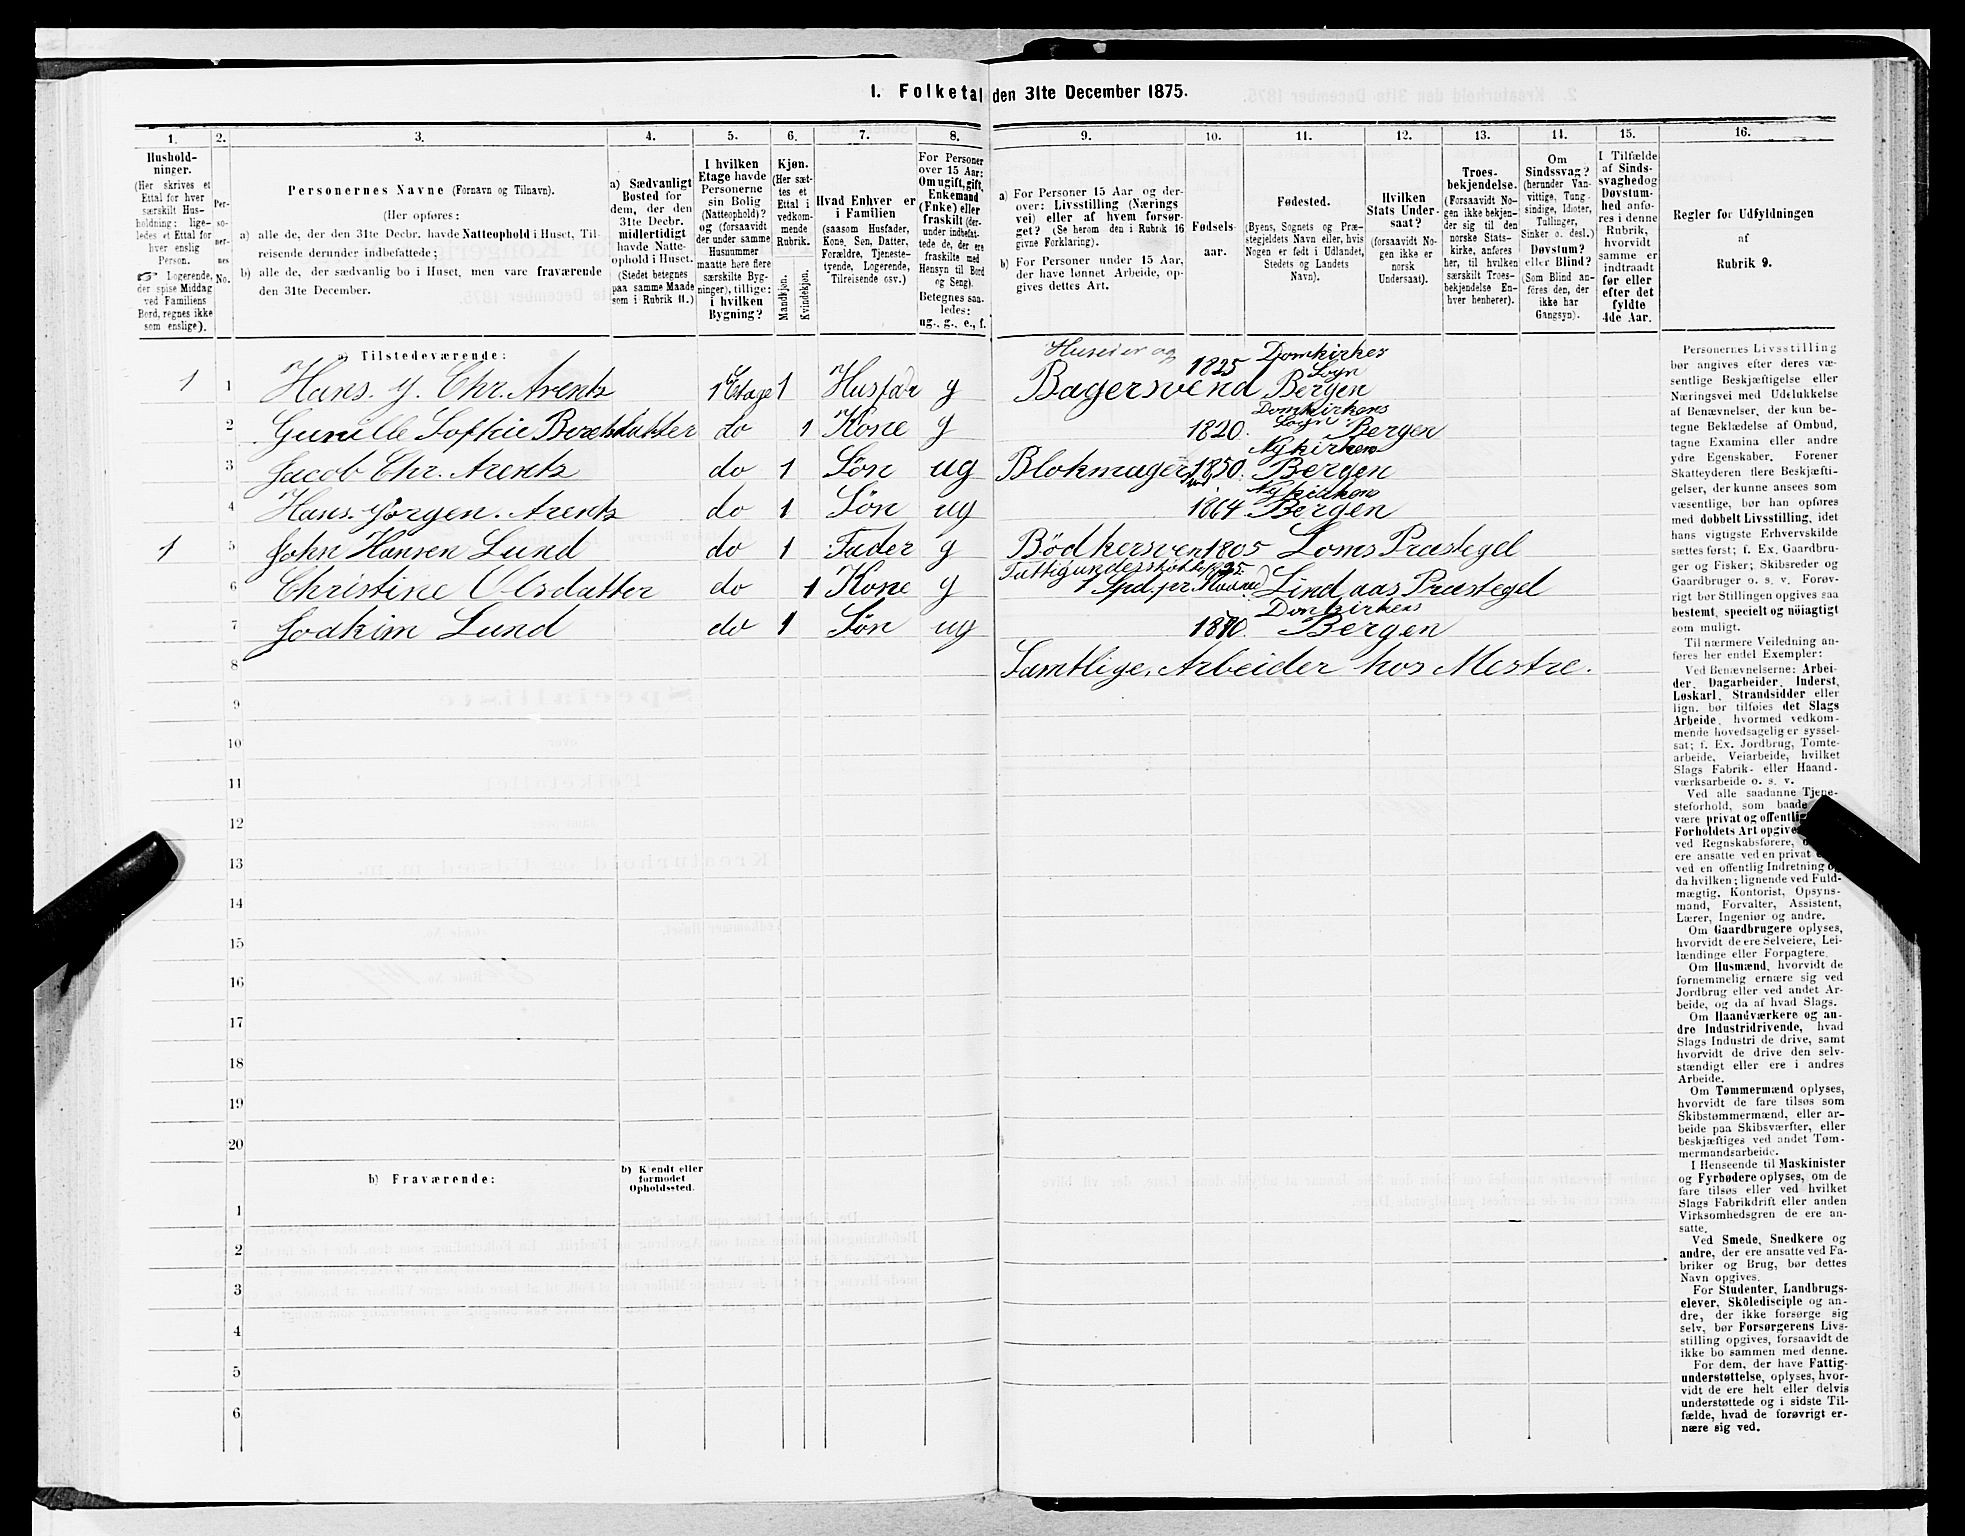 1. Folketal den 31te December 1875.
1. 2. 3. 4. 5. 6. 7. 8. 9. 10. 11. 12. 13. 14. 15. 16.
Hushold-
ninger.
(Her skrives et
Ettal for hver
særskilt Hus-
holdning; lige-
ledes et Ettal for
hver enslig
Person.
☞ Logerende,
der spise Middag
ved Familiens
Bord, regnes ikke
som enslige).
Per-
so-
ner-
nes
No.
Personernes Navne (Fornavn og Tilnavn).
(Her opføres:
a) alle de, der den 31te Decbr. havde Natteophold i Huset, Til-
reisende derunder indbefattede;
b) alle de, der sædvanlig bo i Huset, men vare fraværende
den 31te December.
a) Sædvanligt
Bosted for
dem, der den
31te Decbr.
midlertidigt
havde Natte-
ophold i Huset.
(Stedet betegnes
paa samme Maade
som i Rubrik 11.)
I hvilken
Etage havde
Personerne
sin Bolig
(Natteophold)?
og (forsaavidt
der under samme
Husnummer
maatte høre flere
særskilte Byg-
ninger), tillige:
i hvilken
Bygning?
Kjøn.
(Her sæt-
tes et
Ettal i
vedkom-
mende
Rubrik.
Mandkjøn.
Kvindekjøn.
Hvad Enhver er
i Familien
(saasom Husfader,
Kone, Søn, Datter,
Forældre, Tjeneste-
tyende, Logerende,
Tilreisende osv.)
For Personer
over 15 Aar:
Om ugift, gift,
Enkemand
(Enke) eller
fraskilt (der-
under indbefat-
tede de, der ere
fraskilte med
Hensyn til Bord
og Seng).
Betegnes saa-
ledes:
ug., g., e., f.
a) For Personer 15 Aar og der-
over: Livsstilling (Nærings
vei) eller af hvem forsør-
get? (Se herom den i Rubrik 16
givne Forklaring).
b) For Personer under 15 Aar,
der have lønnet Arbeide, op-
gives dettes Art.
Fødsels-
aar.
Fødested.
(Byens, Sognets og Præ-
stegjeldets Navn eller, hvis
Nogen er født i Udlandet,
Stedets og Landets
Navn).
Hvilken
Stats Under-
saat?
(forsaavidt No-
gen ikke er
norsk
Undersaat).
Troes-
bekjendelse.
(Forsaavidt No-
gen ikke bekjen-
der sig til den
norske Stats-
kirke, anføres
her, til hvilken
særskilt Troes-
bekjendelse En-
hver henhører).
Om
Sindssvag?
(herunder Van-
vittige, Tung-
sindige, Idioter,
Tullinger,
Sinker o. desl.)
Døvstum?
eller Blind?
(Som Blind an-
føres den, der
ikke har
Gangsyn).
I Tilfælde
af Sinds-
svaghed og
Døvstum-
hed anfø-
res i denne
Rubrik,
hvorvidt
samme er
indtraadt
før eller
efter det
fyldte
4de Aar.
Regler for Udfyldningen
af
Rubrik 9.
a) Tilstedeværende:
1 1 Hans. J. Chr. Arentz 1ste Etage 1 Husfar g Huseier og Bagersvend 1825 Domkirkes Sogn Bergen
2 Gunille Sofkie Berentsdatter do 1 Kone g 1820. Domkirkens Sogn Bergen
3 Jacob Chr. Arentz do 1 Søn ug Blokmagersvend 1850. Nykirkens Bergen
4 Hans. Jørgen. Arentz do 1 Søn ug 1864 Nykirkens Bergen
1 5 John Hansen Lund do 1 Fader g Bødkersven 1805 Loms Præstegel
6 Christine Olsdatter do 1 Kone g Fattigunderstøttet 1 Spd. pr Maaned Lindaas Præstegel
7 Joakim Lund do 1 Søn ug Domkirkens Bergen
8 Samtlige, Arbeider hos Mestre.
9
10
11
12
13
14
15
16
17
18
19
20
b) Fraværende:
b) Kjendt eller
formodet
Opholdssted.
1
2
3
4
5
6
Personernes Livsstilling
bør angives efter deres væ-
sentlige Beskjæftigelse eller
Næringsvei med Udelukkelse
af Benævnelser, der kun be-
tegne Beklædelse af Ombud,
tagne Examina eller andre
ydre Egenskaber. Forener
Skatteyderen flere Beskjæfti-
gelser, der kunne ansees som
væsentlige, bør han opføres
med dobbelt Livsstilling, idet
hans vigtigste Erhvervskilde
sættes først; f. Ex. Gaardbru-
ger og Fisker; Skibsreder og
Gaardbruger o. s. v. Forøv-
rigt bør Stillingen opgives saa
bestemt, specielt og nöiagtigt
som muligt.
Til nærmere Veiledning an-
føres her endel Exempler:
Ved Benævnelserne: Arbei-
der, Dagarbeider, Inderst,
Løskarl, Strandsidder eller
lign. bør tilføies det Slags
Arbeide, hvormed vedkom-
mende hovedsagelig er syssel-
sat; f. Ex. Jordbrug, Tomte-
arbeide, Veiarbeide, hvilket
Slags Fabrik- eller Haand-
værksarbeide o. s. v.
Ved alle saadanne Tjene-
steforhold, som baade
være privat og offentlig
Forholdets Art opgives
ved Regnskabsførere,
ere ansatte ved en privat
ved en offentlig Indretning og
da hvilken; lignende ved Fuld-
mægtig, Kontorist, Opsyns-
mand, Forvalter, Assistent,
Lærer, Ingeniør og andre.
Om Gaardbrugere oplyses,
hvorvidt de ere Selveiere, Lei-
lændinge eller Forpagtere.
Om Husmænd, hvorvidt de
fornemmelig ernære sig ved
Jordbrug eller ved andet Ar-
beide, og da af hvad Slags.
Om Haandværkere og an-
dre Industridrivende, hvad
Slags Industri de drive, samt
hvorvidt de drive den selv-
stændigt eller ere i andres
Arbeide.
Om Tømmermænd oplyses,
hvorvidt de fare tilsøs som
Skibstømmermænd, eller ar-
beide paa Skibsværfter, eller
beskjæftiges ved andet Tøm-
mermandsarbeide.
I Henseende til Maskinister
og Fyrbødere oplyses, om de
fare tilsøs eller ved hvilket
Slags Fabrikdrift eller anden
Virksomhedsgren de ere an-
satte.
Ved Smede, Snedkere og
andre, der ere ansatte ved Fa-
briker og Brug, bør dettes
Navn opgives.
For Studenter, Landbrugs-
elever, Skoledisciple og an-
dre, der ikke forsørge sig
selv, bør Forsørgerens Livs-
stilling opgives, forsaavidt de
ikke bo sammen med denne.
For dem, der have Fattig-
understøttelse, oplyses, hvor-
vidt de ere helt eller delvis
understøttede og i sidste Til-
fælde, hvad de forøvrigt er-
nære sig ved.